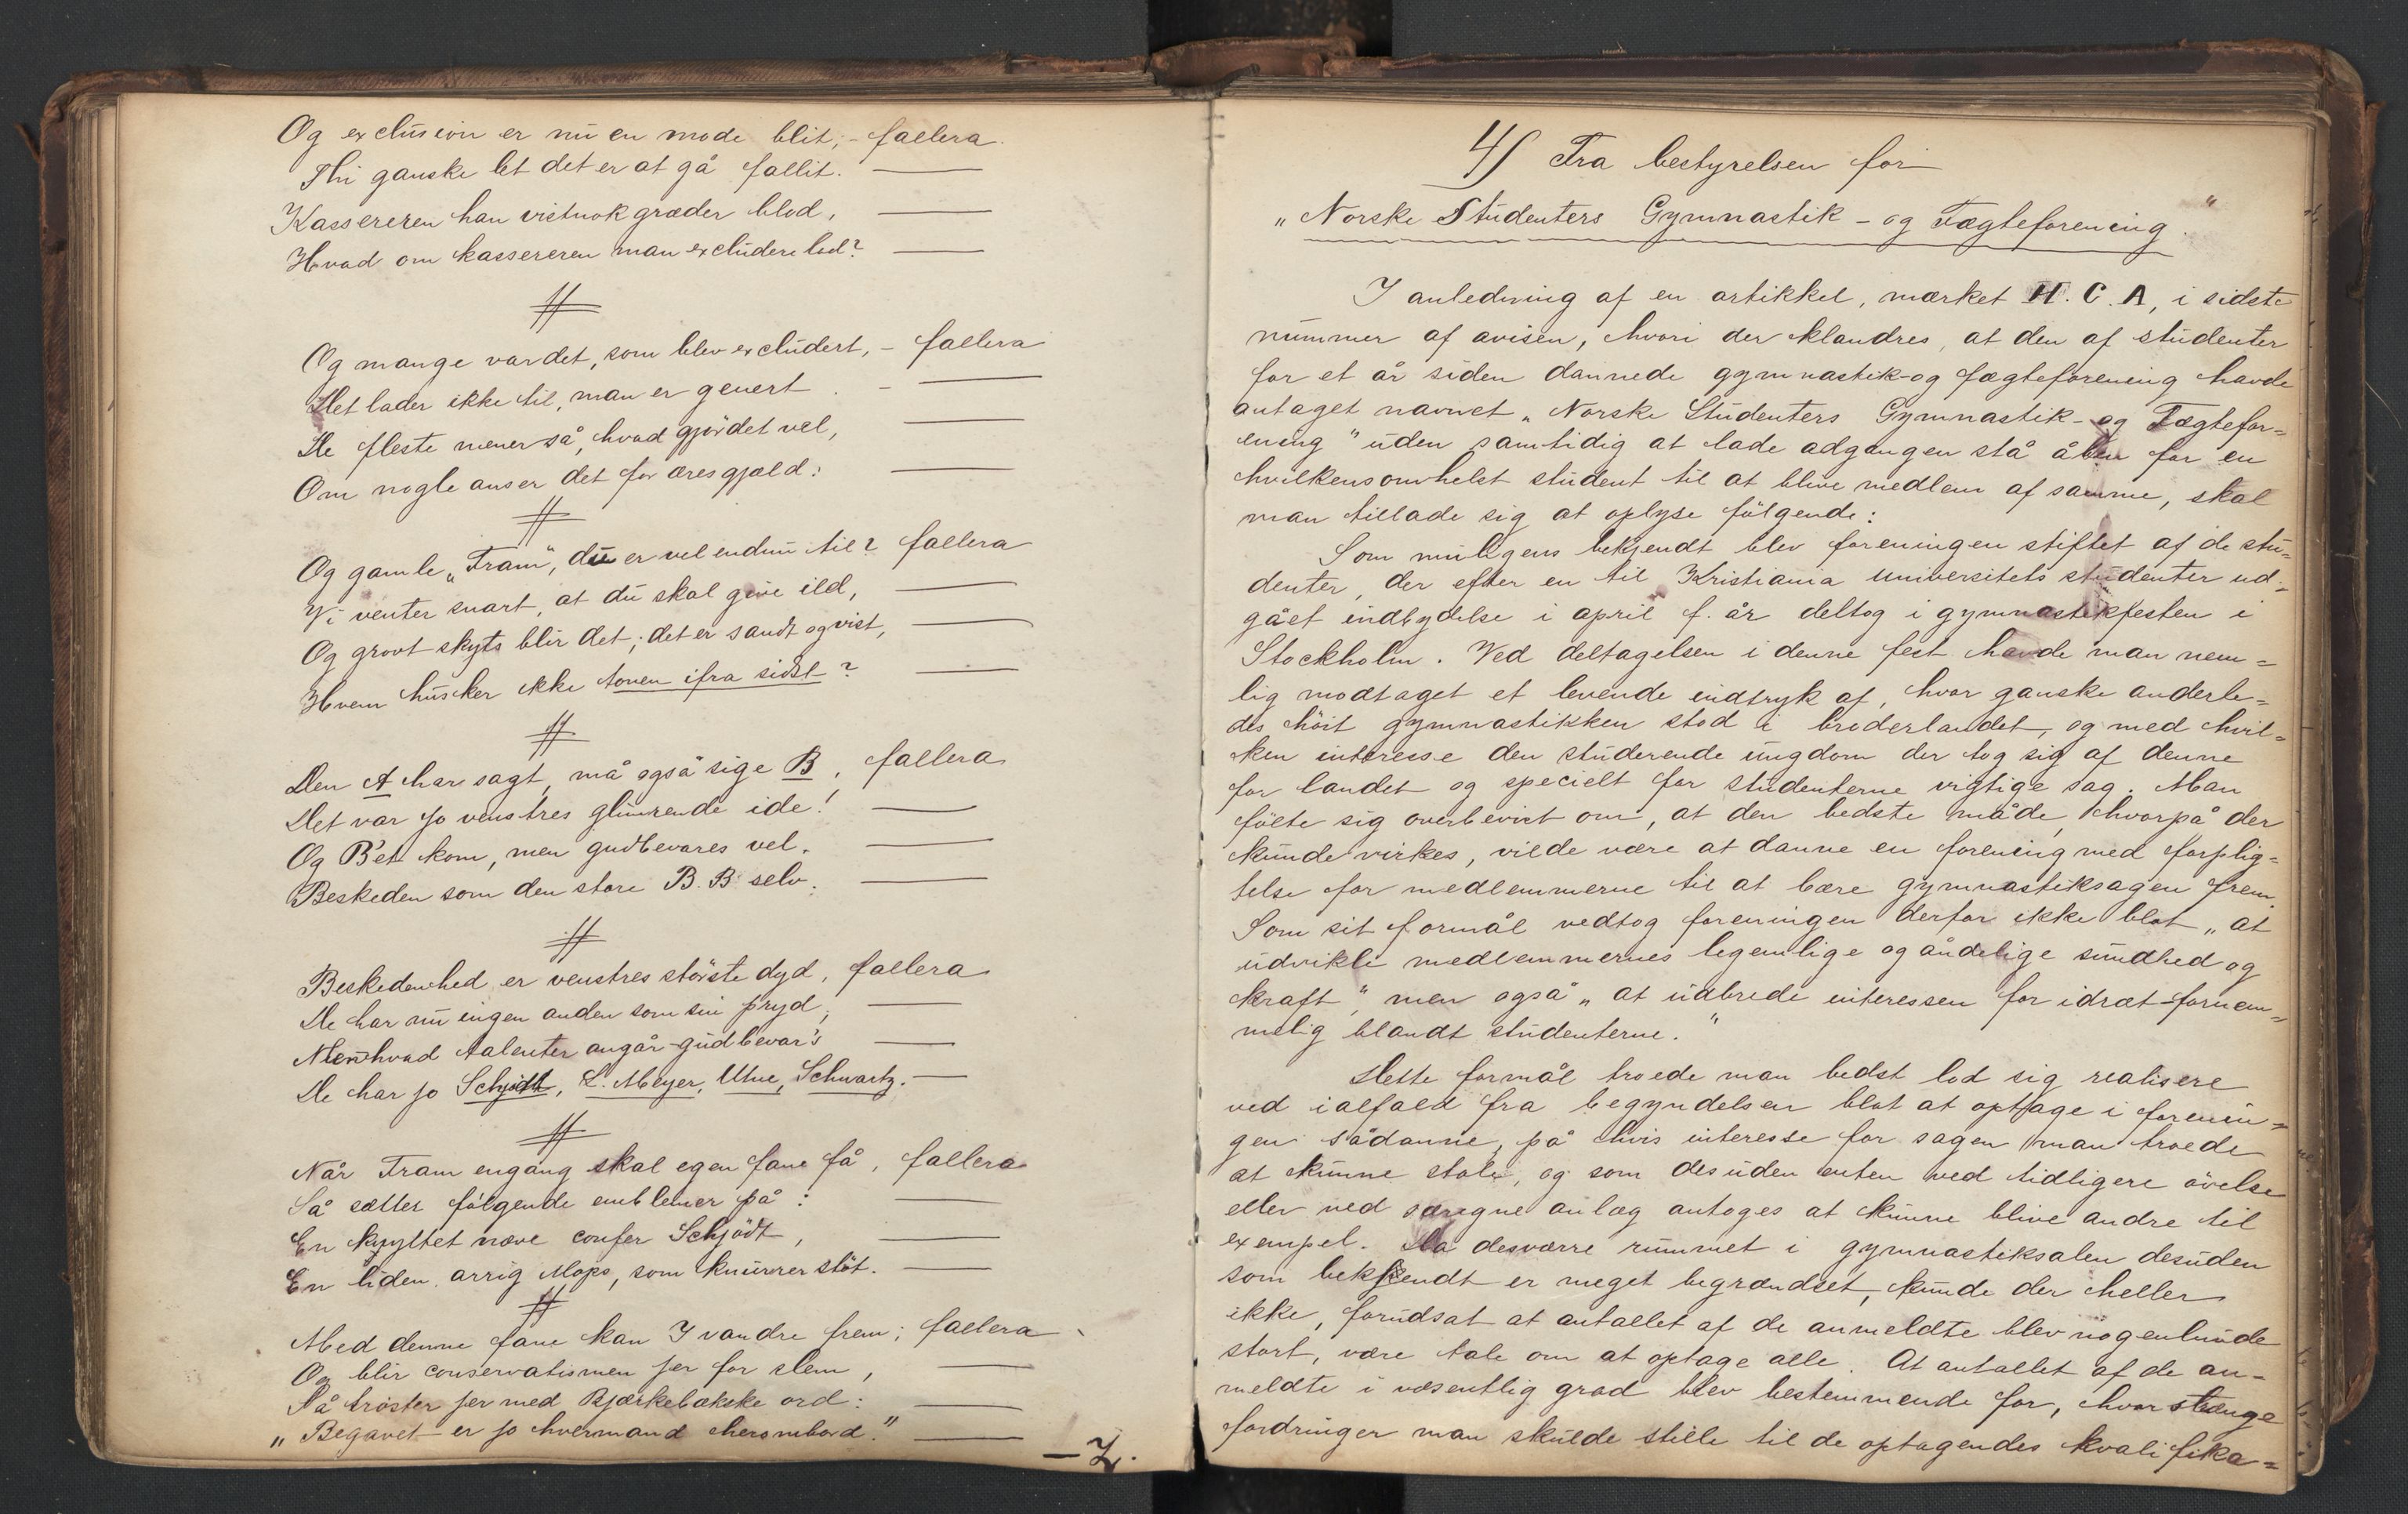 Og exclusion er nu en mode blit; - fallera.
Thi ganske let det er at gå fallit. —
Kassereren han vistnok græder blod, —
Hvad om kassereren man excludere lod? —
#
Og mange var det, som blev excludert, - fallera
Det lader ikke til, man er genert - —
De fleste mener så, hvad gjør det vel, —
Om nogle anser det for æresgjæld: —
#
Og gamle „Fram“, du er vel endnu til? fallera
Vi venter snart, at du skal give ild, —
Og grovt skyts blir det; det er sandt og vist, —
Hvem husker ikke tonen ifra sidst? —
#
Den A har sagt, må også sige B, fallera
Det var jo venstres glimrende ide! —
Og B'et kom, men gudbevares vel. —
Beskeden som den store B. B. selv. —
#
Beskedenhed er venstres største dyd, fallera
De har nu ingen anden som sin pryd, —
Men hvad talenter angår - gudbevar's —
De har jo Schjødt, L. Meyer, Utne, Schwartz. —
#
Når Fram engang skal egen fane få, fallera
Så sættes følgende emblemer på: —
En knyttet næve confer Schjødt, —
En liden arrig Mops, som knurrer støt. —
#
Med denne fane kan I vandre frem; fallera
Og blir conservatismen jer for slem, —
Så trøster jer med Bjærkebækske ord: —
„Begavet er jo hvermand herombord.“ —
— Z.
4/ Fra bestyrelsen for
„Norske Studenters Gymnastik- og Fægteforening.“
I anledning af en artikkel, mærket H. C. A, i sidste
nummer af avisen, hvori der klandres, at den af studenter
for et år siden dannede gymnastik- og fægteforening havde
antaget navnet „Norske Studenters Gymnastik- og Fægtefor=
ening“ uden samtidig at lade adgangen stå åben for en
hvilkensomhelst student til at blive medlem af samme, skal
man tillade sig at oplyse følgende:
Som muligens bekjendt blev foreningen stiftet af de stu=
denter, der efter en til Kristiania universitets studenter ud=
gået indbydelse i april f. år deltog i gymnastikfesten i
Stockholm. Ved deltagelsen i denne fest havde man nem=
lig modtaget et levende indtryk af, hvor ganske anderle=
des høit gymnastikken stod i broderlandet, og med hvil=
ken interesse den studerende ungdom der tog sig af denne
for landet og specielt for studenterne vigtige sag. Man
følte sig overbevist om, at den bedste måde, hvorpå der
kunde virkes, vilde være at danne en forening med forplig=
telse for medlemmerne til at bære gymnastiksagen frem.
Som sit formål vedtog foreningen derfor ikke blot „at
udvikle medlemmernes legemlige og åndelige sundhed og
kraft“, men også „at udbrede interessen for idræt fornem=
melig blandt studenterne.“
Dette formål troede man bedst lod sig realisere
ved ialfald fra begyndelsen blot at optage i forenin=
gen sådanne, på hvis interesse for sagen man troede
at kunne stole, og som desuden enten ved tidligere øvelse
eller ved særegne anlæg antoges at kunne blive andre til
exempel. Da desværre rummet i gymnastiksalen desuden
som bekjendt er meget begrændset, kunde der heller
ikke, forudsat at antallet af de anmeldte blev nogenlunde
stort, være tale om at optage alle. At antallet af de an=
meldte i væsentlig grad blev bestemmende for, hvor stænge
fordringer man skulde stille til de optagendes kvalifika=